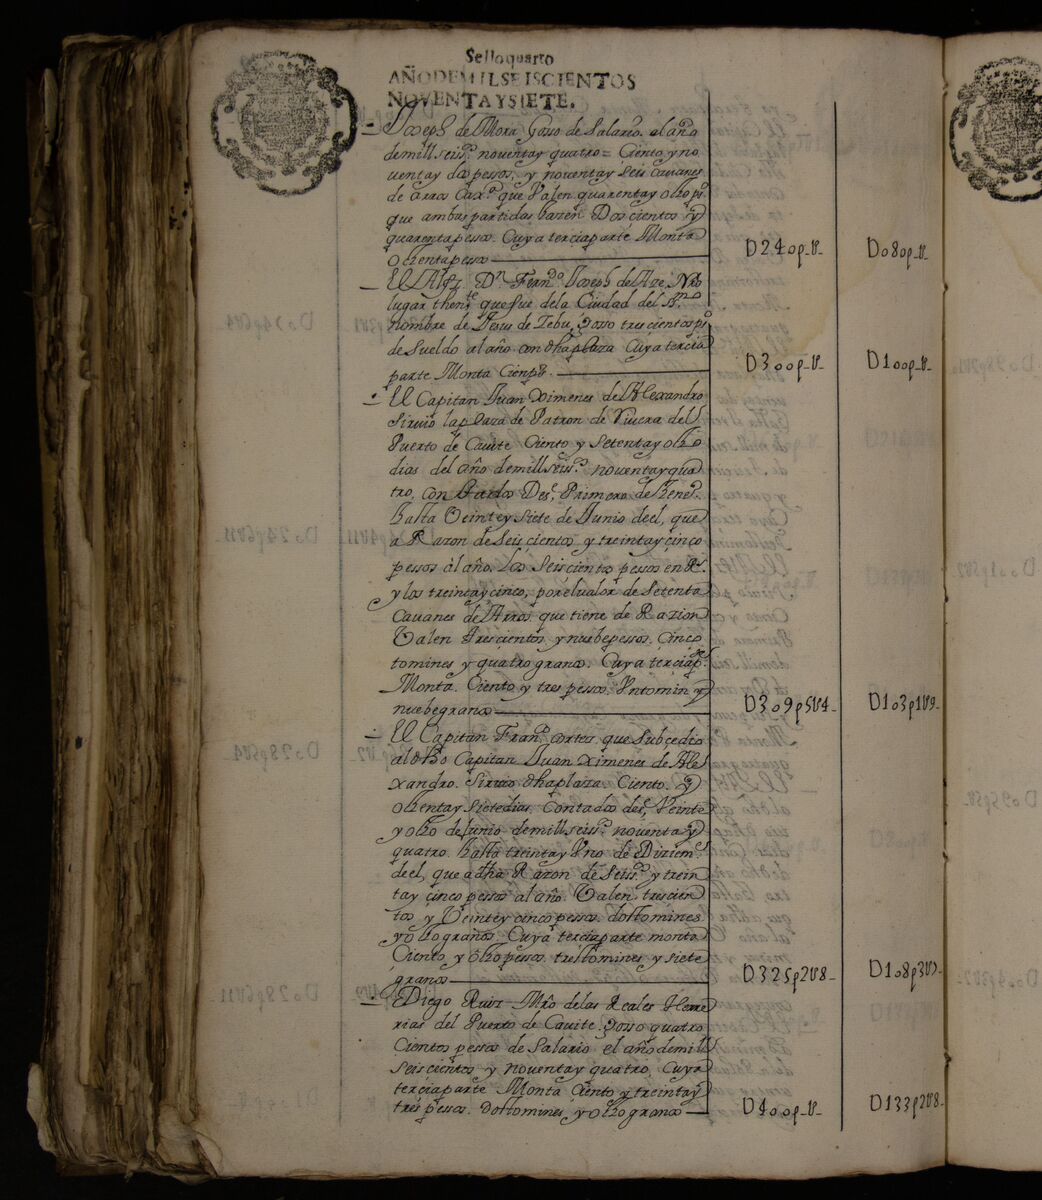 Sello quarto
AÑO DE MIL SEISCIENTOS
NOVENTA Y SIETE.
Joseph de Mora Goso de Salario al año
de mill seis.s noventa y quatro = Ciento y no
venta y dos pessos, y noventa y seis cavanes
de arros que Valen quarenta y ocho ps.
que ambas partidas hazen Dos cientos y
quarenta pessos. Cuya tercia parte Monta
Ochenta pessos D240p_U_ D080p_U_
El Alfz. Dn. Fern.do Joseph de
lugar then.te que fue de la Ciudad del
nombre de Jesus de Cebu, Gosso trescientos ps
de Sueldo al año con dha plaza Cuya tercia
parte Monta Cien ps. D300p_U_ D100p_U_
El Capitan Juan Ximenes de Alexandro
Sirvio la plaza de Patron de Rivera del
Puerto de Cavite Ciento y Setenta y ocho
dias del año de mill seis.s noventa y qua
tro, Contados Des.e Primero de Hener.o
hasta Veinte y siete de Junio de el, que
a Razon de Seiscientos y treinta y cinco
pessos al año. Los Seiscientos pessos en Rs.
y los treinta y cinco, por el valor de Setenta
Cavanes de Arros que tiene de Razion
Valen Trescientos y nuebe pessos. Cinco
tomines y quatro granos. Cuya tercia pte.
Monta. Ciento y tres pessos. Un tomin y
nuebe granos D309p5U4_ D103p1U9_
El Capitan Fran.co cortes que Subcedio
al dho Capitan Juan Ximenes de Ale
xandro. Sirvio dha plaza. Ciento. y
Ochenta y Siete dias. Contados des.e Veinte
y ocho de Junio de mill seis.s noventa y
quatro hasta treinta y Uno de Diziem.e
de el, que a dha Razon de Seis.s y trein
ta y cinco pessos al año. Valen trescien
tos y Veinte y cinco pessos. dos tomines
y ocho granos. Cuya tercia parte monta
Ciento y ocho pessos. tres tomines y siete
granos D325p2U8_ D108p3U7_
Diego Ruiz Mro de las Reales Herre
rias del Puerto de Cavite. Gosso quatro
Cientos pessos de Salario el año de mill
Seiscientos y noventa y quatro. Cuya
tercia parte Monta Ciento y treinta y
tres pessos. dos tomines y ocho granos D400p_U_ D133p2U8_